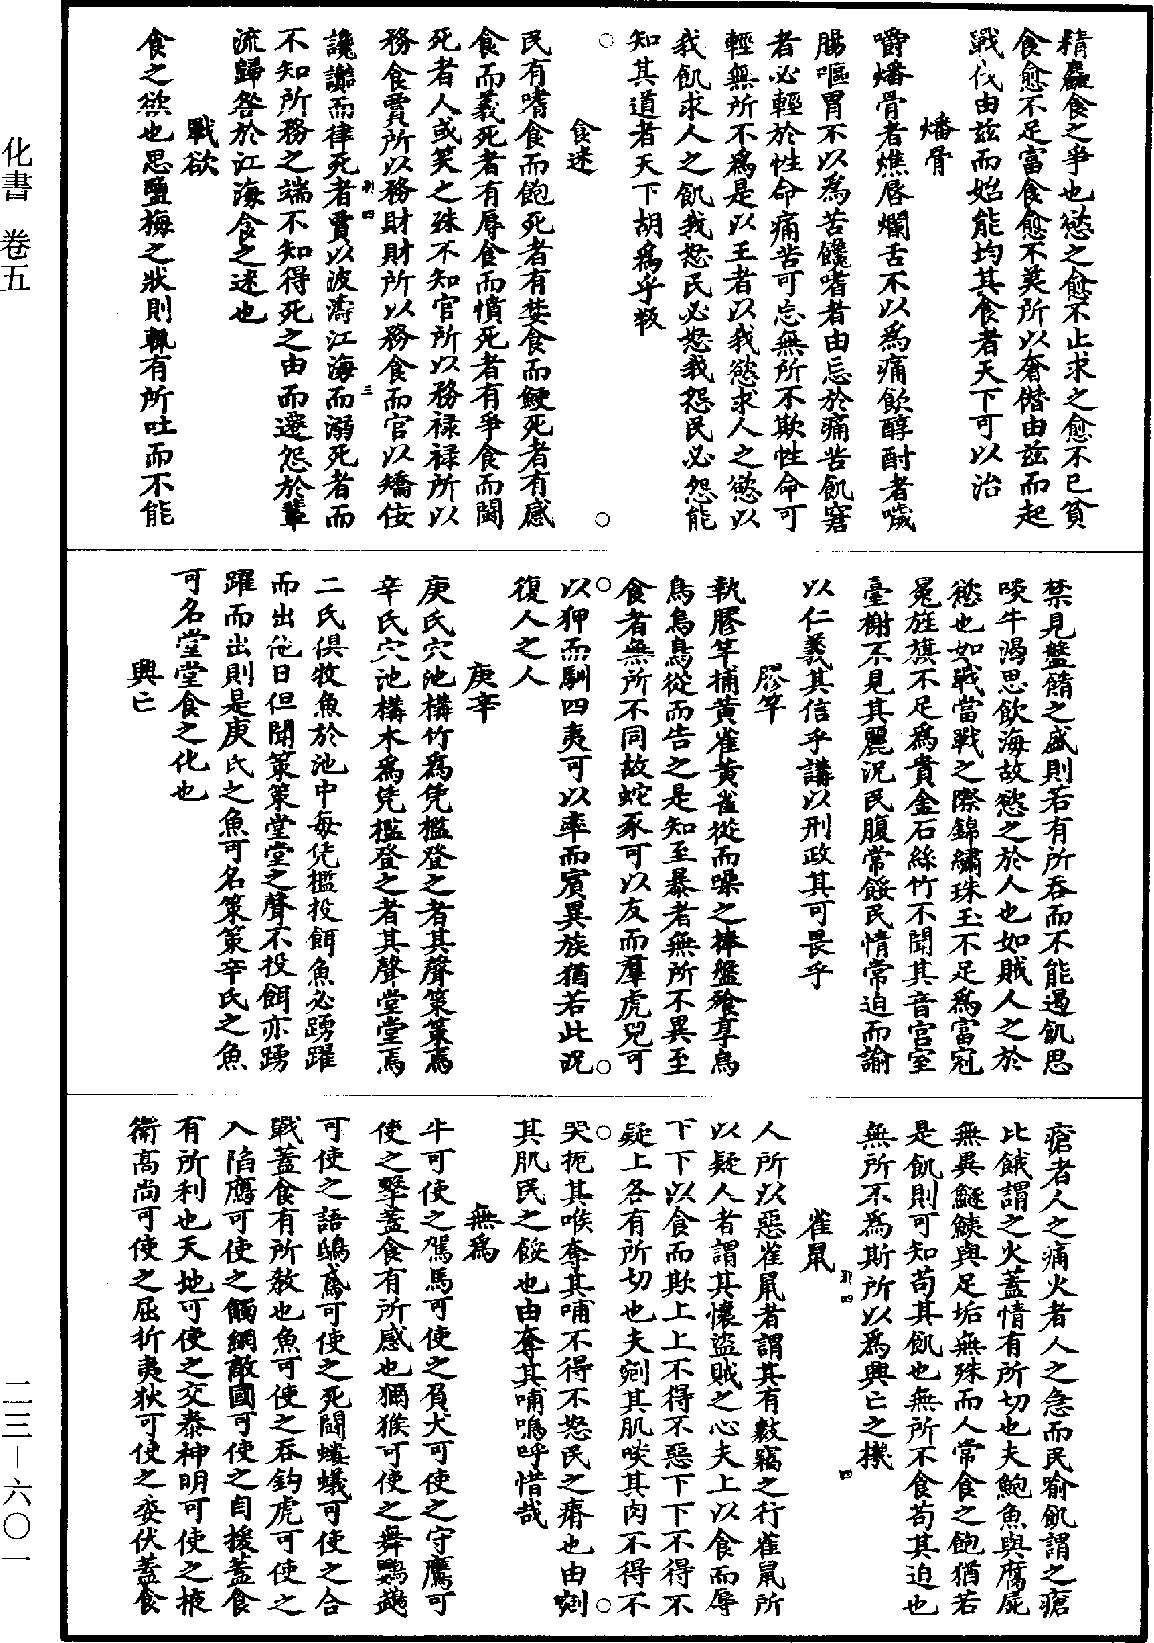 化書　卷五
精麤食之爭也慾之愈不止求之愈不已貧
食愈不足富食愈不美所以奢僭由茲而起
戰伐由茲而始能均其食者天下可以治
燔骨
嚼燔骨者燋脣爛舌不以爲痛飲醇酎者噦
腸嘔胃不以爲苦饞嗜者由忘於痛苦飢窘
者必輕於性命痛苦可忘無所不欺性命可
輕無所不爲是以王者以我慾求人之慾以
我飢求人之飢我怒民必怒我怨民必怨能
知其道者天下胡爲乎叛
○食迷○
民有嗜食而飽死者有婪食而鯁死者有感
食而義死者有辱食而憤死者有爭食而鬬
死者人或笑之殊不知官所以務祿祿所以
務食賈所以務財財所以務食而官以矯佞
別四　三
讒讟而律死者賈以波濤江海而溺死者而
不知所務之端不知得死之由而遷怨於輩
流歸咎於江海食之迷也
戰欲
食之欲也思鹽梅之狀則輒有所吐而不能
禁見盤餚之盛則若有所吞而不能遏飢思
啖牛渴思飲海故慾之於人也如賊人之於
慾也如戰當戰之際錦繡珠玉不足爲富冠
冕旌旗不足爲貴金石絲竹不聞其音宮室
臺榭不見其麗況民腹常餒民情常迫而諭
以仁義其信乎講以刑政其可畏乎
膠竿
執膠竿捕黃雀黃雀從而噪之捧盤飱享烏
烏烏烏從而告之是知至暴者無所不異至
食者無所不同故蛇豕可以友而羣虎兕可
○以狎而馴四夷可以率而賓異族猶若此況○
復人之人
庚辛
庚氏穴池構竹爲凭檻登之者其聲策策焉
辛氏穴池構木爲凭檻登之者其聲堂堂焉
二氏俱牧魚於池中每凭檻投餌魚必踴躍
而出他日但聞策策堂堂之聲不投餌亦踴
躍而出則是庚氏之魚可名策策辛氏之魚
可名堂堂食之化也
興亡
瘡者人之痛火者人之急而民喻飢謂之瘡
比餓謂之火蓋情有所切也夫鮑魚與腐屍
無異鱁鮧與足垢無殊而人常食之飽猶若
是飢則可知苟其飢也無所不食苟其迫也
無所不爲斯所以爲興亡之機
別四　四
雀鼠
人所以惡雀鼠者謂其有穀竊之行雀鼠所
以疑人者謂其懷盜賊之心夫上以食而辱
下下以食而欺上上不得不惡下下不得不
疑上各有所切也夫剜其肌啖其肉不得不
○哭扼其喉奪其哺不得不怒民之瘠也由剜○
其肌民之餒也由奪其哺嗚呼惜哉
無爲
牛可使之駕馬可使之負犬可使之守鷹可
使之擊蓋食有所感也獼猴可使之舞鸚鵡
可使之語鴟鳶可使之死鬬螻蟻可使之合
戰蓋食有所教也魚可使之吞鈎虎可使之
入陷鴈可使之觸網敵國可使之自援蓋食
有所利也天地可使之交泰神明可使之掖
衞高尚可使之屈折夷狄可使之委伏蓋食
二三－六〇一